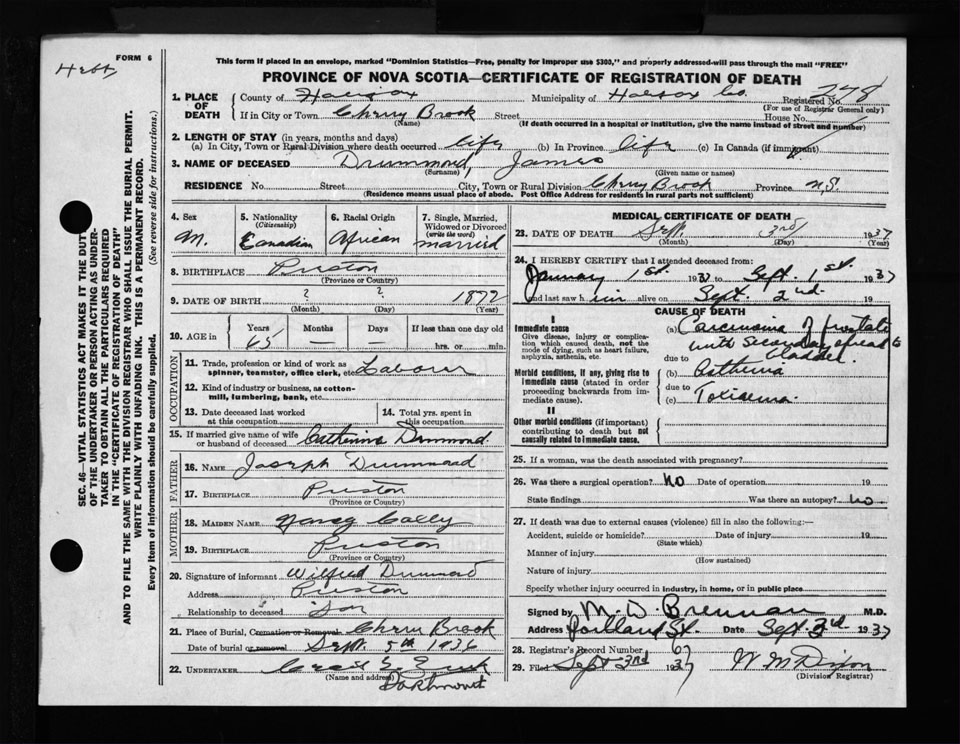 FORM 6
This form if placed in an envelope, marked "Dominion Statistics—Free, penalty for improper use $300," and properly addressed will pass through the mail "FREE"
PROVINCE OF NOVA SCOTIA—CERTIFICATE OF REGISTRATION OF DEATH
SEC. 46—VITAL STATISTICS ACT MAKES IT THE DUTY
OF THE UNDERTAKER OR PERSON ACTING AS UNDER-
TAKER TO OBTAIN ALL THE PARTICULARS REQUIRED
IN THE "CERTIFICATE OF REGISTRATION OF DEATH"
AND TO FILE THE SAME WITH THE DIVISION REGISTRAR WHO SHALL ISSUE THE BURIAL PERMIT.
WRITE PLAINLY WITH UNFADING INK. THIS IS A PERMANENT RECORD.
Every item of information should be carefully supplied. (See reverse side for instructions.)
1. PLACE OF DEATH County of Halifax Municipality of Halifax Co. Registered No. 278
(For use of Registrar General only)
If in City or Town Cherry Brook Street House No.
(Name) (If death occurred in a hospital or institution, give the name instead of street and number)
2. LENGTH OF STAY (in years, months and days)
(a) In City, Town or Rural Division where death occurred life (b) In Province life (c) In Canada (if immigrant)
3. NAME OF DECEASED Drummond, James
(Surname) (Given name or names)
RESIDENCE No. Street City, Town or Rural Division Cherry Brook Province N.S.
(Residence means usual place of abode. Post Office Address for residents in rural parts not sufficient)
4. Sex M. 5. Nationality (Citizenship) Canadian 6. Racial Origin African 7. Single, Married, Widowed or Divorced (write the word) married
8. BIRTHPLACE Preston
(Province or Country)
9. DATE OF BIRTH ? ? 1872
(Month) (Day) (Year)
10. AGE in Years 65 Months — Days — If less than one day old
hrs. or min.
OCCUPATION
11. Trade, profession or kind of work as spinner, teamster, office clerk, etc. Labourer
12. Kind of industry or business, as cotton-mill, lumbering, bank, etc.
13. Date deceased last worked at this occupation 14. Total yrs. spent in this occupation
15. If married give name of wife or husband of deceased Drummond
FATHER
16. NAME Joseph Drummond
17. BIRTHPLACE Preston
MOTHER
18. MAIDEN NAME Nancy
19. BIRTHPLACE Preston
(Province or Country)
20. Signature of informant Wilfred Drummond
Address Preston
Relationship to deceased Son
21. Place of Burial, Cremation or Removal Cherry Brook
Date of burial or removal Sept. 5th 1936
22. UNDERTAKER
(Name and address) Dartmouth
MEDICAL CERTIFICATE OF DEATH
23. DATE OF DEATH Sept. 3rd 1937
(Month) (Day) (Year)
24. I HEREBY CERTIFY that I attended deceased from:
January 1st. 1937 to Sept. 1st. 1937
and last saw him alive on Sept. 2nd. 19
CAUSE OF DEATH
I
Immediate cause
Give disease, injury or complication which caused death, not the mode of dying, such as heart failure, asphyxia, asthenia, etc.
(a) Carcinoma of prostate
with secondary spread to
due to bladder.
Morbid conditions, if any, giving rise to immediate cause (stated in order proceeding backwards from immediate cause).
(b) Asthenia
due to
(c) Toxaemia.
II
Other morbid conditions (if important) contributing to death but not causally related to immediate cause.
25. If a woman, was the death associated with pregnancy?
26. Was there a surgical operation? No Date of operation 19
State findings Was there an autopsy? No
27. If death was due to external causes (violence) fill in also the following:—
Accident, suicide or homicide? Date of injury 19
(State which)
Manner of injury
(How sustained)
Nature of injury
Specify whether injury occurred in industry, in home, or in public place
Signed by M. D. Brennan M.D.
Address Portland St. Date Sept. 3rd 1937
28. Registrar's Record Number 67
29. Filed Sept 3rd 1937 W M Dixon
(Division Registrar)